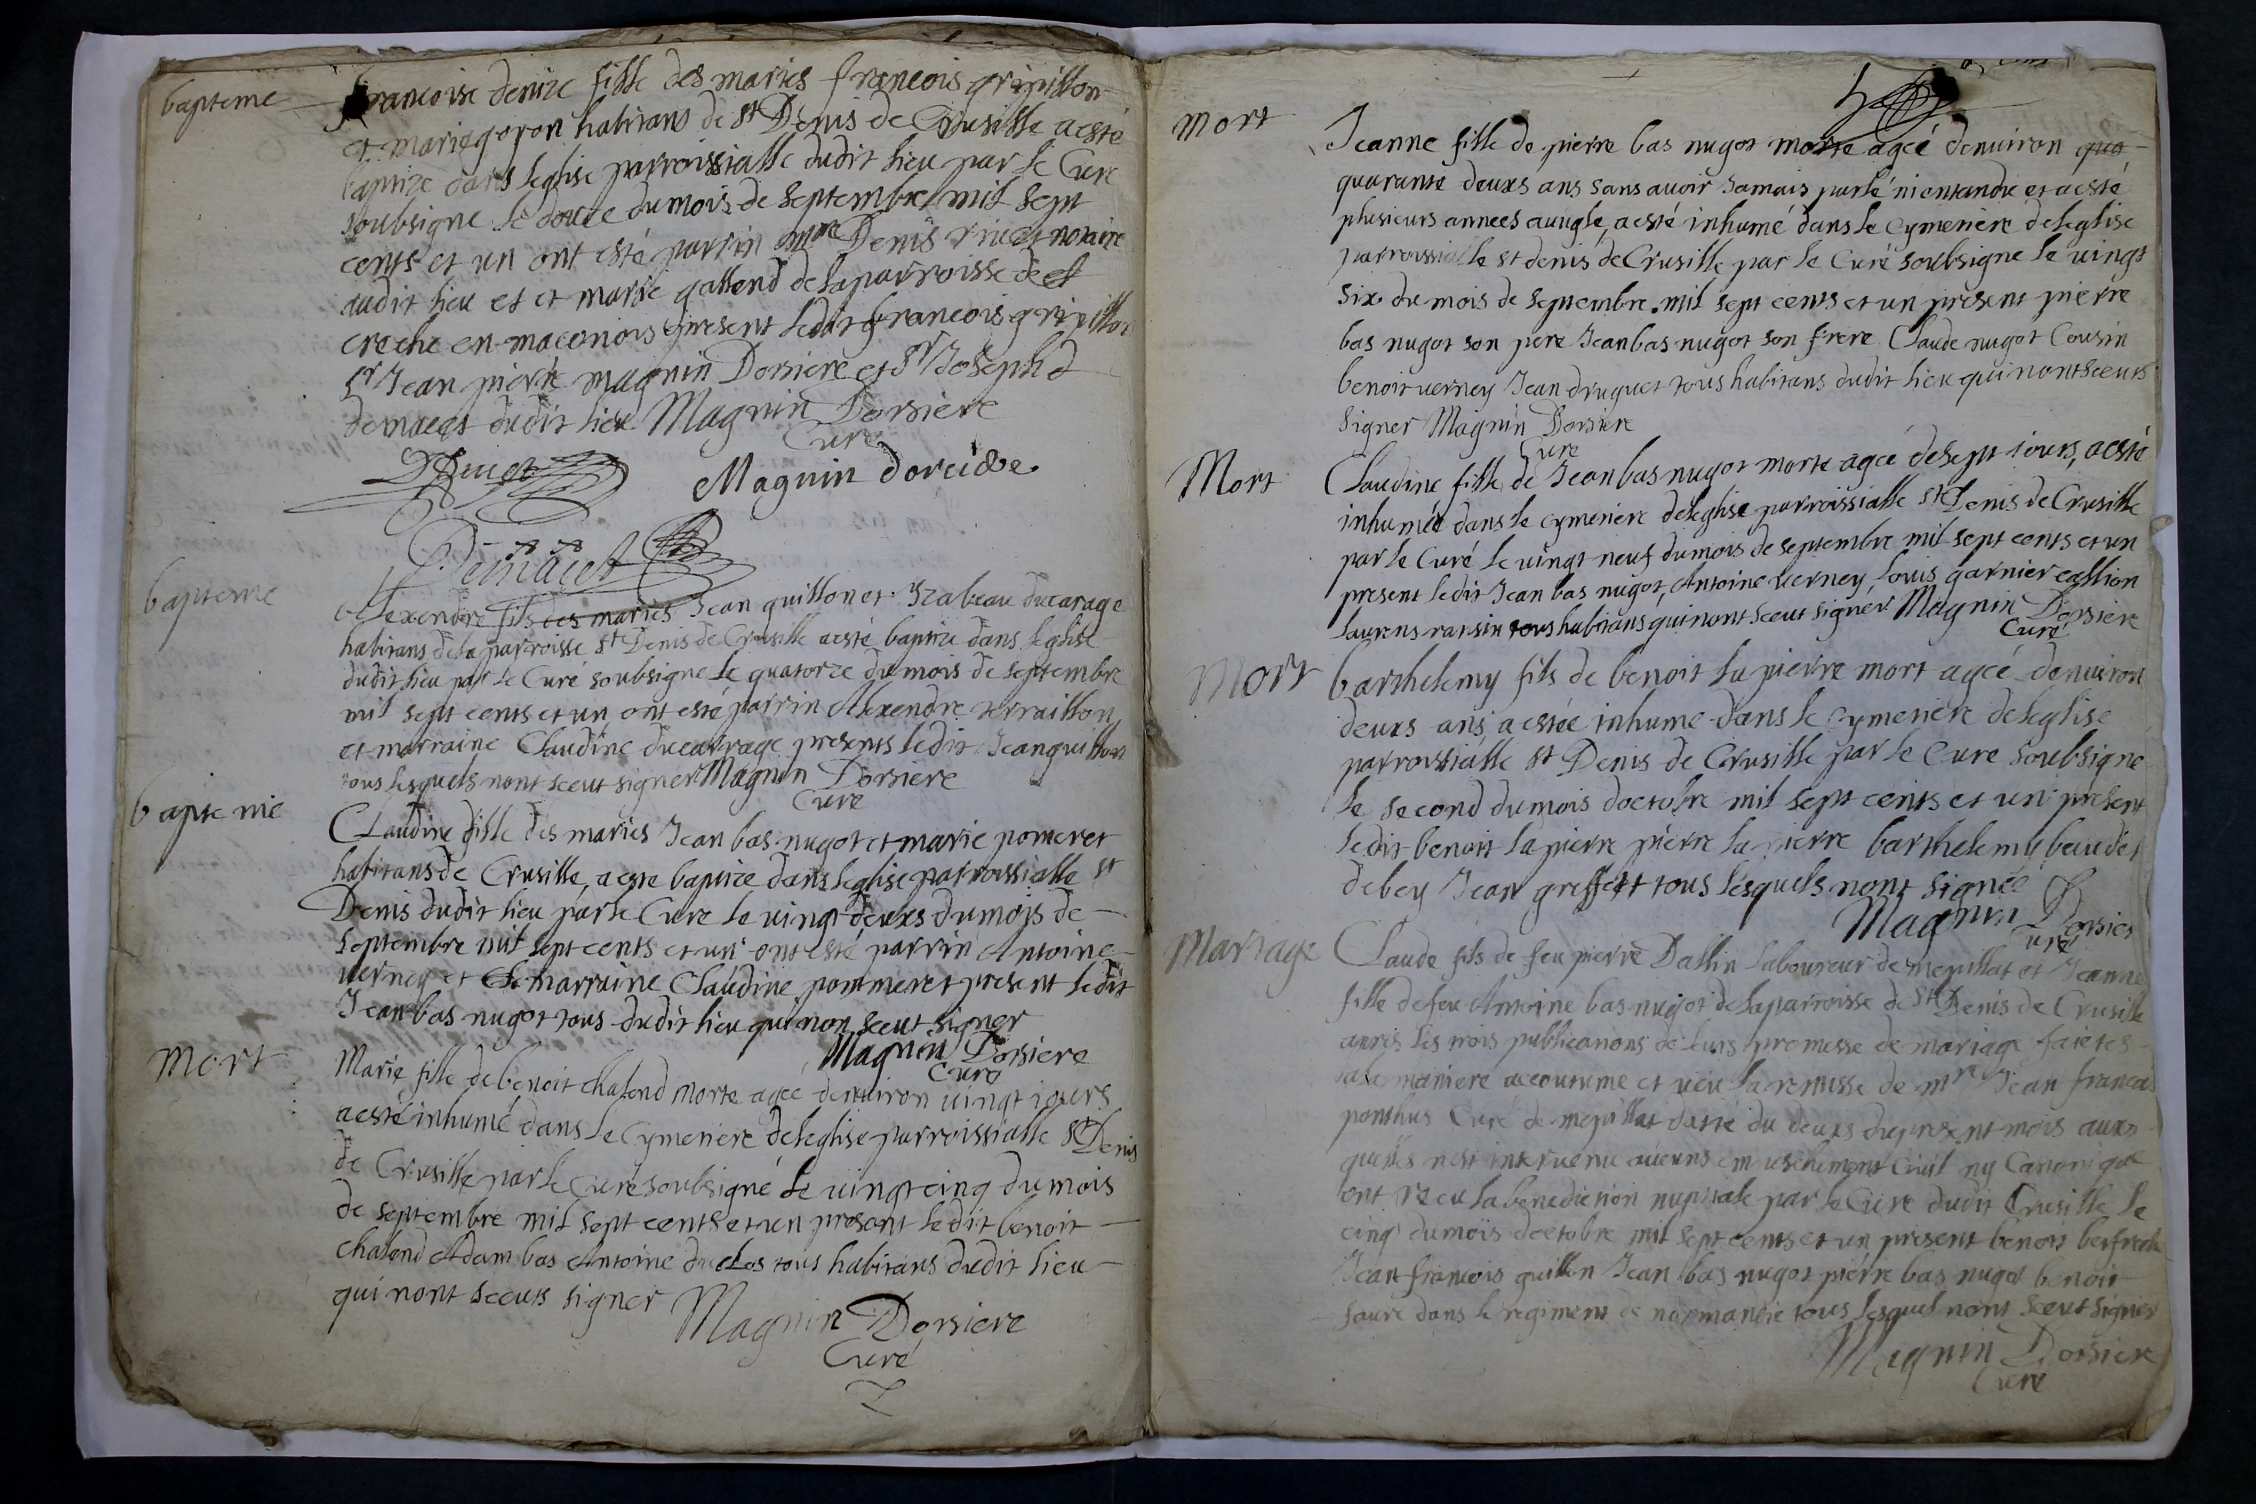 bapteme
francoise denize fille des maries francois gripillon
et marie goyon habitans de st Denis de Crusille a esté
baptize dans leglise parroissialle dudit lieu par le Curé
soubsigne le douze du mois de septembre mil sept
cents et un ont esté parrin mre Denis riuet notaire
dudit lieu et et marie gallend de la parroisse de st
creche en maconois present ledit francois gripillon
sr Jean pierre magnin Dorsiere et sr Joseph d
dudit lieu Magnin Dorsiere
Curé
DRiuet
Magnin dorcière
bapteme
Alexendre fils des maries Jean guillon et Izabeau ducarage
habitans de la parroisse st Denis de Crusille a esté baptize dans leglise
dudit lieu par le Curé soubsigne le quatorze du mois de septembre
mil sept cents et un ont esté parrin Alexendre terraillon
et marraine Claudine ducarrage presents ledit Jean guillon
tous lesquels nont sceut signer Magnin Dorsiere
Curé
bapteme
Claudine fille des maries Jean bas nugot et marie pomeret
habitans de Crusille, a este baptize dans leglise parroissialle st
Denis dudit lieu par le Curé le vingt deuxs du mois de
septembre mil sept cents et un ont esté parrin Antoine
verney et la marraine Claudine pommeret present ledit
Jean bas nugot tous dudit lieu qui non sceut signer
Magnin Dorsiere
Curé
mort
Marie fille de benoit chalend morte agée denuiron vingt iours
a esté inhumé dans le cymetiere de leglise parroissialle st Denis
de Crusille par le Curé soubsigné le vingt cinq du mois
de septembre mil sept cents et un present ledit benoit
chalend Adam bas Antoine duclos tous habitans dudit lieu
qui nont sceuts signer Magnin Dorsiere
Curé
mort
Jeanne fille de pierre bas nugot morte agée denuiron qua
quarante deuxs ans sans auoir Jamais parlé ni entandu et a esté
plusieurs annees augle, a esté inhumé dans le cymetiere de leglise
parroissialle st denis de Crusille par le Curé soubsigne le vingt
six du mois de septembre mil sept cents et un present pierre
bas nugot son pere Jean bas nugot son frere Claude nugot Cousin
benoit verney Jean druguet tous habitans dudit lieu qui nont sceuts
signer Magnin Dorsiere
Curé
Mort
Claudine fille de Jean bas nugot morte agée de sept iours, a esté
inhumée dans le cymetiere de leglise parroissialle st Denis de Crusille
par le Curé le vingt neuf du mois de septembre mil sept cents et un
present ledit Jean bas nugot, Antoine verney, louis garnier
laurens raisin tous habitans qui nont sceut signér Magnin Dorsiere
Curé
Mort
barthelemy fils de benoit la pierre mort agée denuiron
deuxs ans a estée inhume dans le cymetiere de leglise
parroissialle st Denis de Crusille par le Curé soubsigné
le second du mois doctobre mil sept cents et un present
ledit benoit la pierre pierre la pierre barthelemy beaudet
de bey Jean greffet tous lesquels nont signée
Magnin Dorsiere
Curé
Mariage
Claude fils de feu pierre Dallin laboureur de mepillat et Jeanne
fille de feu Antoine bas nugot de la parroisse de st Denis de Crusille
apres les trois publications de leurs promesse de mariage faictes
a la maniere accoutume et veu la remisse de mre Jean francois
ponthus Curé de mepillat datte du deuxs du present mois aux
quelles nest intervenu aucuns empeschement Ciuil ny Canonique
ont receu la benediction nuptiale par le Curé dudit Crusille le
cinq du mois doctobre mil sept cents et un present benoit
Jean francois guillon Jean bas nugot pierre bas nugot benoit
faure dans le regiment de normandie tous lesquel nont sceut signer
Magnin Dorsiere
Curé